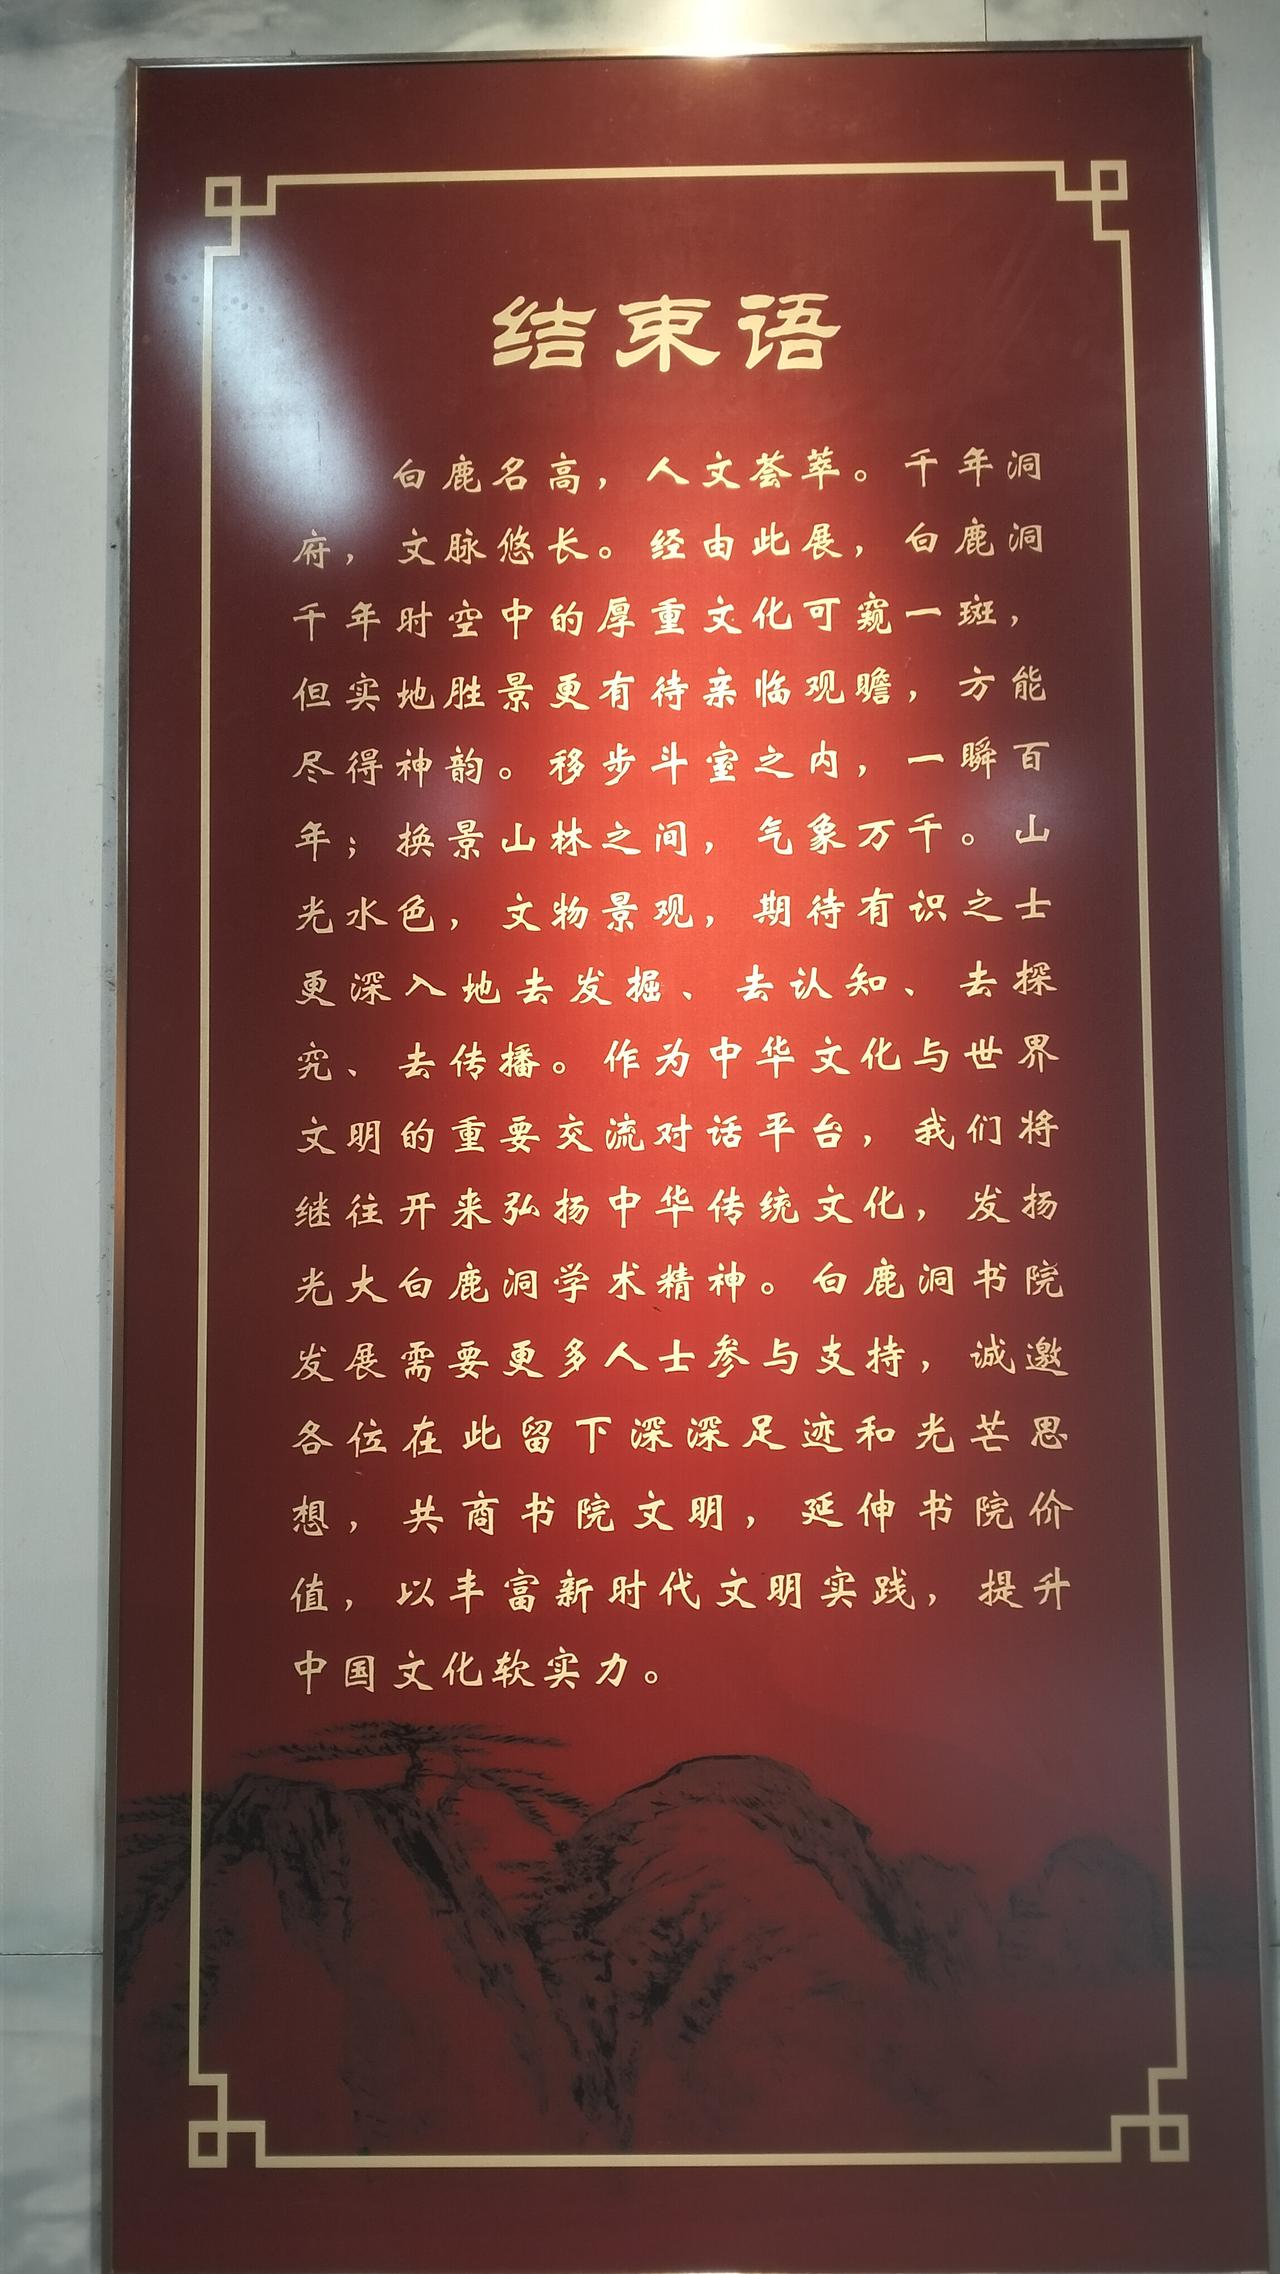 结束语
白鹿名高，人文荟萃。千年洞
府，文脉悠长。经由此展，白鹿洞
千年时空中的厚重文化可窥一斑，
但实地胜景更有待亲临观瞻，方能
尽得神韵。移步斗室之内，一瞬百
年；换景山林之间，气象万千。山
光水色，文物景观，期待有识之士
更深入地去发掘、去认知、去探
究、去传播。作为中华文化与世界
文明的重要交流对话平台，我们将
继往开来弘扬中华传统文化，发扬
光大白鹿洞学术精神。白鹿洞书院
发展需要更多人士参与支持，诚邀
各位在此留下深深足迹和光芒思
想，共商书院文明，延伸书院价
值，以丰富新时代文明实践，提升
中国文化软实力。